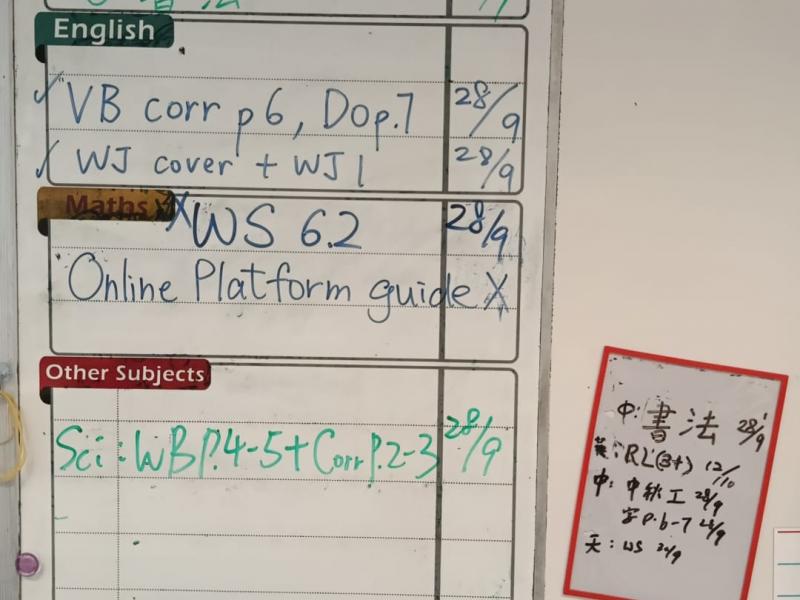 書法
English
✓ VB corr p6, Do p.7 28/9
✓ WJ cover + WJ 1 28/9
Maths
X WS 6.2 28/9
Online Platform guide X
Other Subjects
Sci: WB P.4-5 + Corr P.2-3 28/9
中: 書法 28/9
英: RL(3+) 12/10
中: 中秋工 28/9
P.6-7 28/9
WS